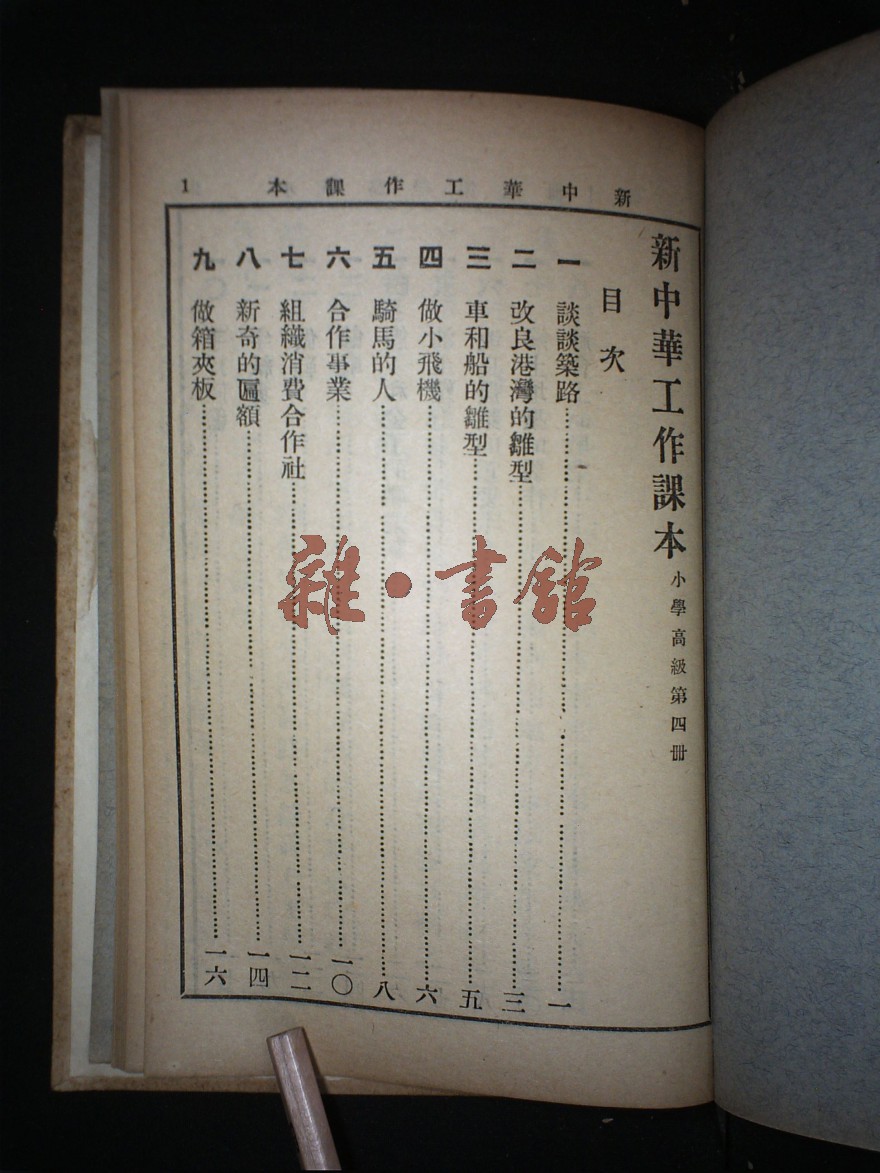 新中華工作課本 1
新中華工作課本 小學高級第四冊
目次
一 談談築路……一
二 改良港灣的雛型……三
三 車和船的雛型……五
四 做小飛機……六
五 騎馬的人……八
六 合作事業……一〇
七 組織消費合作社……一二
八 新奇的匾額……一四
九 做箱夾板……一六
雜·書館